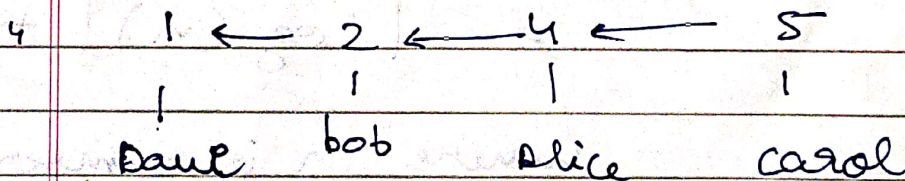 4 1 ← 2 ← 4 ← 5
Dave bob Alice carol